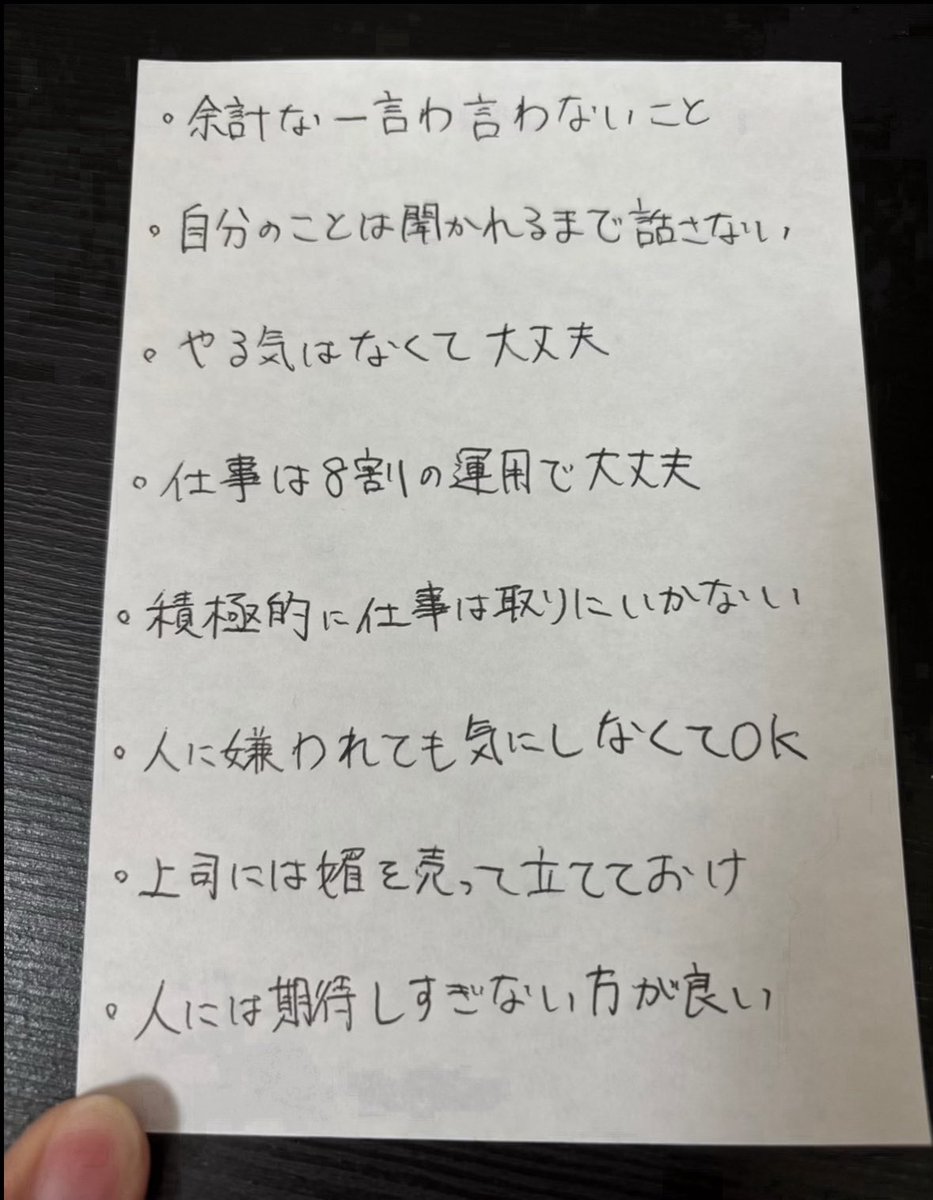 。余計な一言わ言わないこと
。自分のことは聞かれるまで話さない
。やる気はなくて大丈夫
。仕事は8割の運用で大丈夫
。積極的に仕事は取りにいかない
。人に嫌われても気にしなくてOK
。上司には媚を売って立てておけ
。人には期待しすぎない方が良い